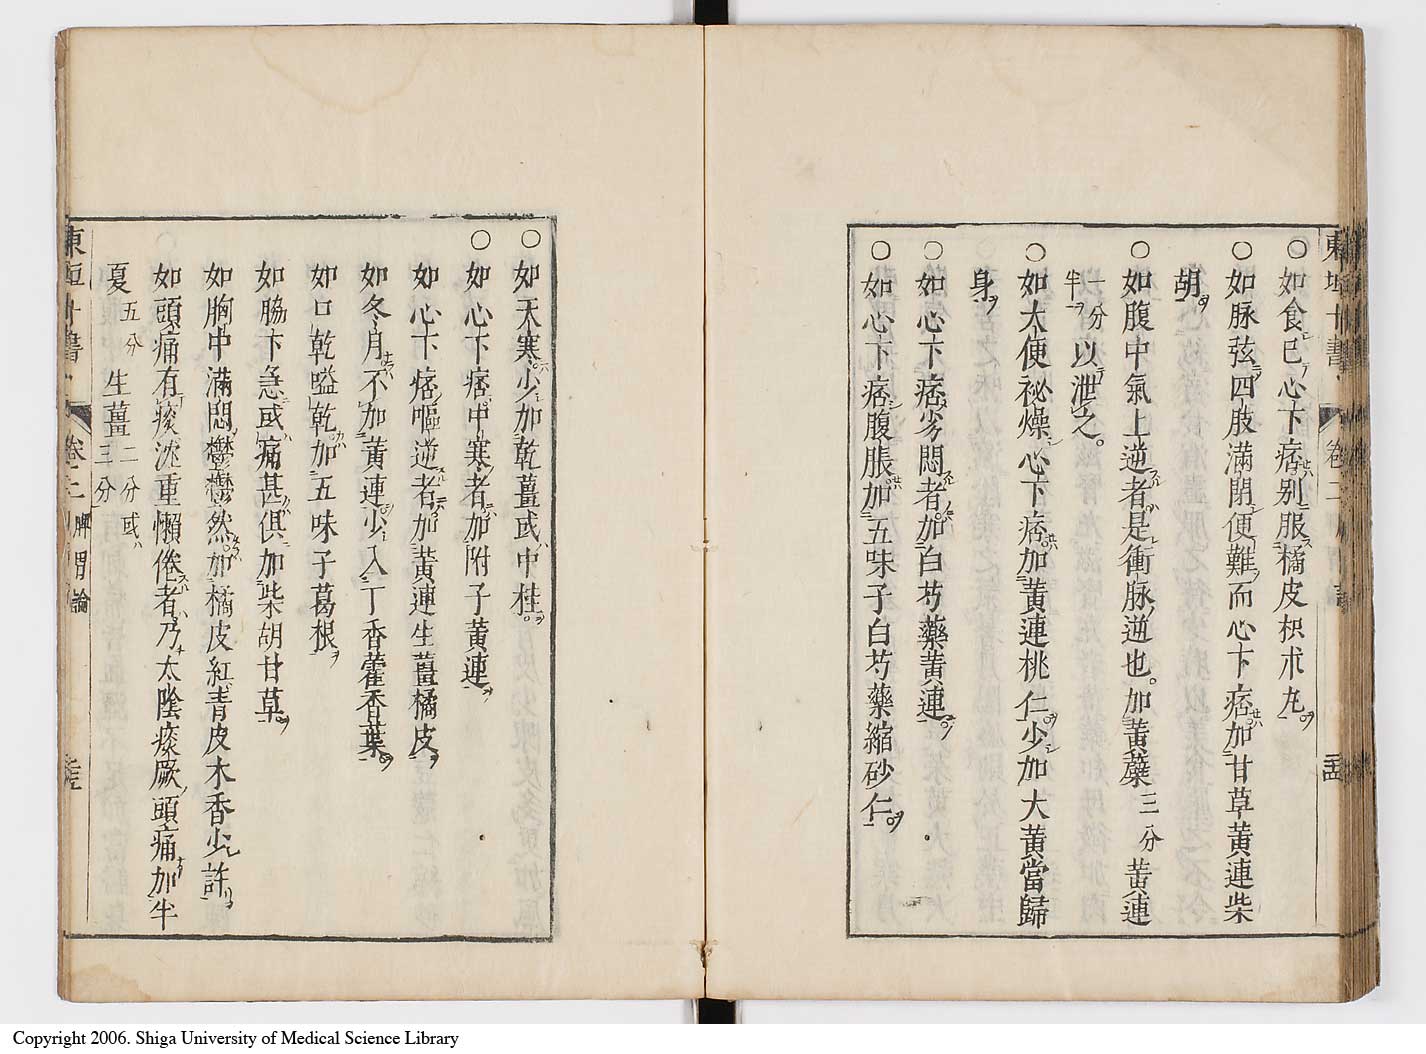 ○如食已心下痞別服橘皮枳朮丸
○如脉弦四肢滿閉便難而心下痞加甘草黃連柴
胡
○如腹中氣上逆者是衝脉逆也。加黃蘗三分黃連
一分半以泄之。
○如大便祕燥心下痞加黃連桃仁少加大黃當歸
身
○如心下痞夯悶者加白芍藥黃連
○如心下痞腹脹加五味子白芍藥縮砂仁
○如天寒少加乾薑或中桂
○如心下痞中寒者加附子黃連
如心下痞嘔逆者加黃連生薑橘皮
如冬月不加黃連少入丁香藿香葉
如口乾嗌乾加五味子葛根
如脇下急或痛甚俱加柴胡甘草
如胸中滿悶鬱鬱然加橘皮紅青皮木香少許
如頭痛有痰沈重懶倦者乃太陰痰厥頭痛加半
夏五分生薑二分或三分
東垣十書 卷二 脾胃論
Copyright 2006. Shiga University of Medical Science Library